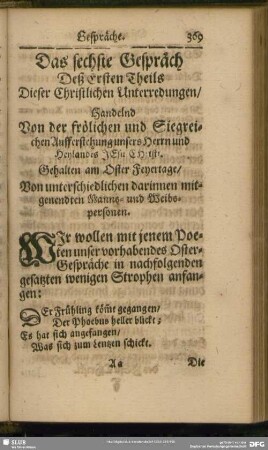 Gespräche. 369
Das sechste Gespräch
Deß Ersten Theils
Dieser Christlichen Unterredungen/
Handelnd
Von der frölichen und Siegrei-
chen Aufferstehung unsers Herrn und
Heylandes JEsu Christi.
Gehalten am Oster Feyertage/
Von unterschiedlichen darinnen mit-
genendten Manns- und Weibs-
personen.
WIr wollen mit jenem Poe-
ten unser vorhabendes Oster-
Gespräche in nachfolgenden
gesatzten wenigen Strophen anfan-
gen:
DEr Frühling köm̃t gegangen/
Der Phoebus heller blickt;
Es hat sich angefangen/
Was sich zum Lentzen schickt.
Aa Die
SLUB
DFG